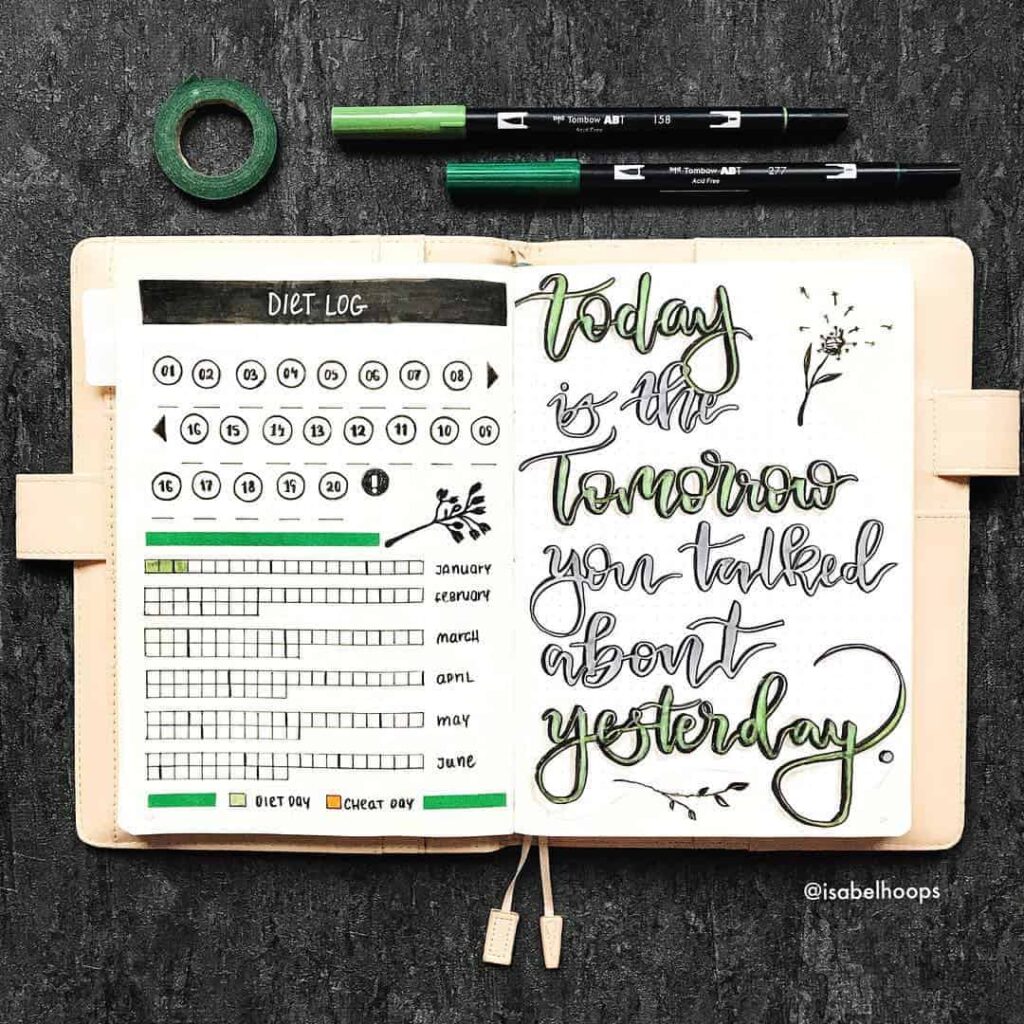 Tombow ABT 158
Acid Free
Tombow ABT 277
Acid Free
DIET LOG
01 02 03 04 05 06 07 08
16 15 14 13 12 11 10 09
16 17 18 19 20 !
JANUARY
FEBRUARY
MARCH
APRIL
MAY
JUNE
DIET DAY CHEAT DAY
Today
is the
Tomorrow
you talked
about
yesterday?
@isabelhoops